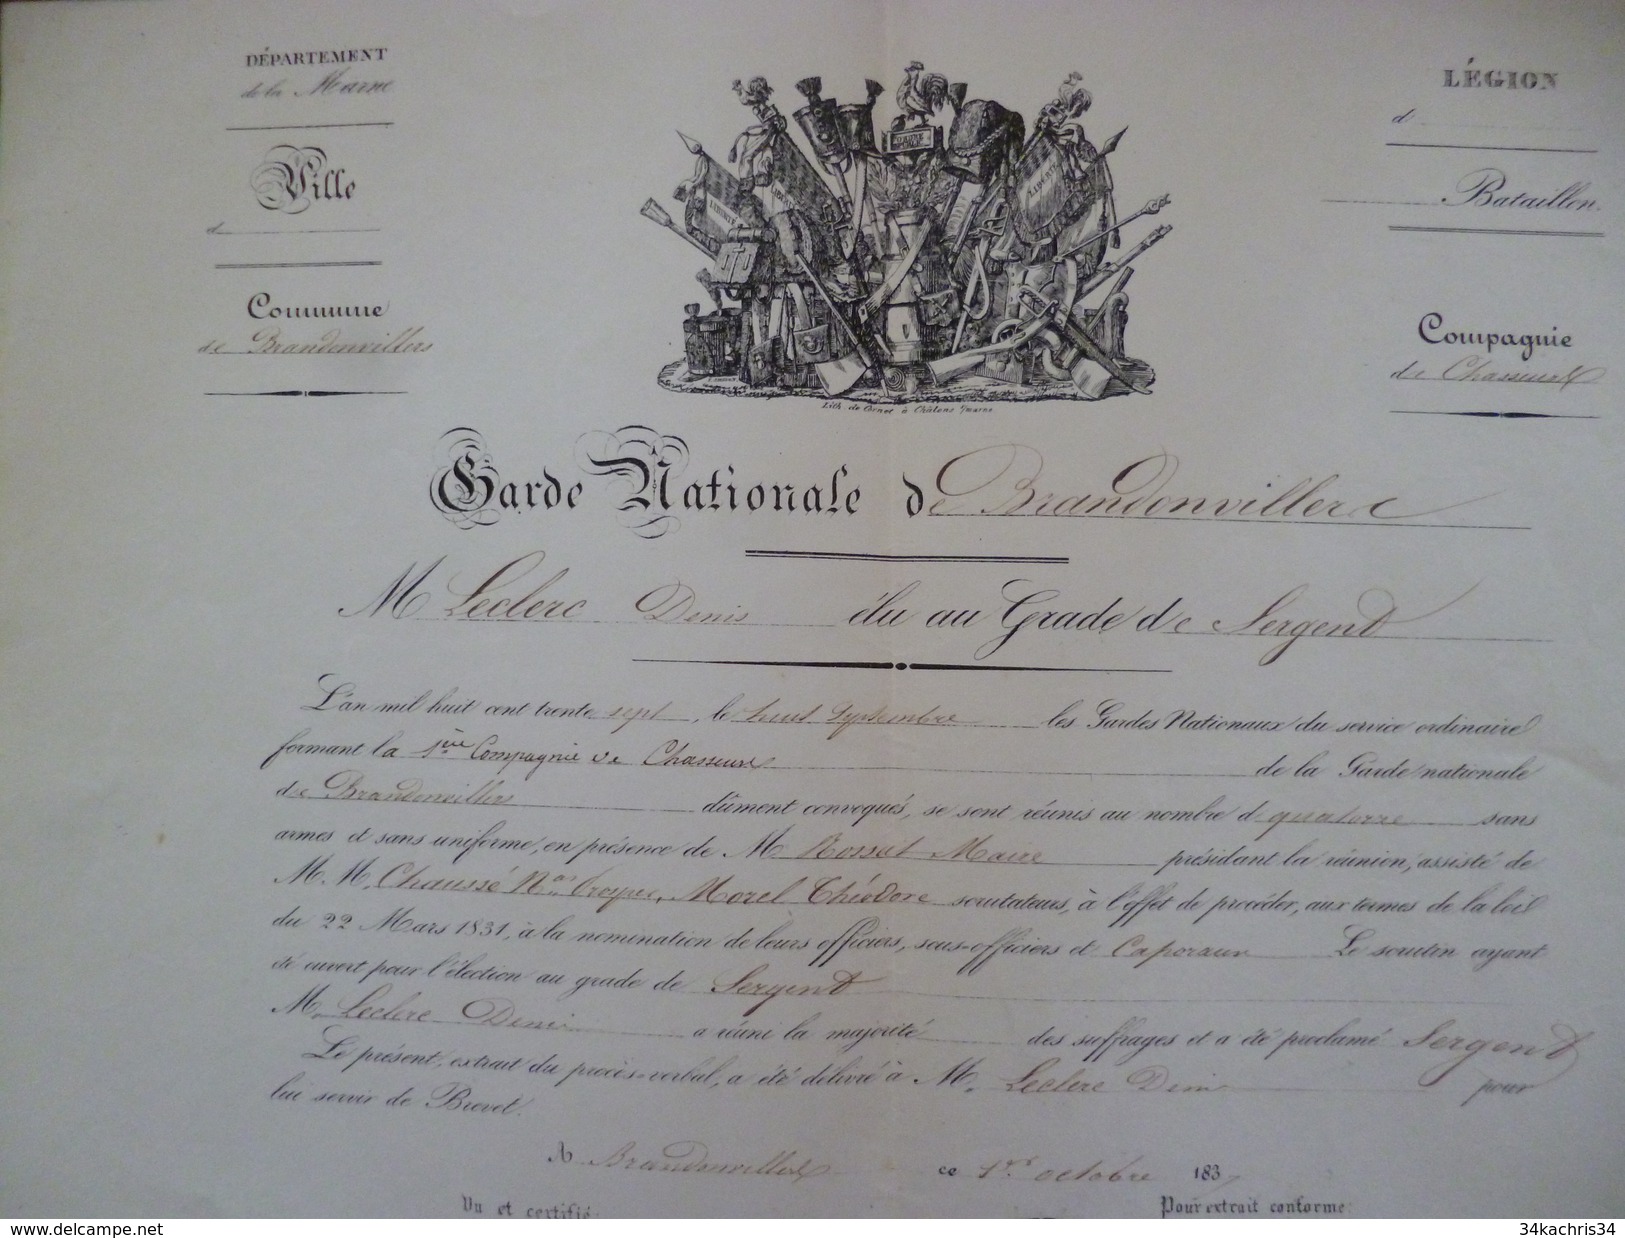 DÉPARTEMENT
de la Marne
Ville
d
Commune
de Brandonvillers
LÉGION
d
Bataillon.
Compagnie
de Chasseurs
LIBERTÉ
LIBERTÉ
Lith. de Cornet à Châlons s/marne
Garde Nationale de Brandonvillers
M Leclerc Denis élu au Grade de Sergent
L'an mil huit cent trente sept, le huit Septembre les Gardes Nationaux du service ordinaire
formant la 1ère Compagnie de Chasseurs de la Garde nationale
de Brandonvillers dûment convoqués, se sont réunis au nombre d quatorze sans
armes et sans uniforme, en présence de M. Rossat Maire présidant la réunion, assisté de
M. M. Chaussé Nas Morel Théodore scrutateurs, à l'effet de procéder, aux termes de la loi
du 22 Mars 1831, à la nomination de leurs officiers, sous-officiers et Caporaux Le scrutin ayant
été ouvert pour l'élection au grade de Sergent
M. Leclerc Denis a réuni la majorité des suffrages et a été proclamé Sergent
Le présent, extrait du procès-verbal, a été délivré à M. Leclerc Denis pour
lui servir de Brevet.
A Brandonvillers ce 1er octobre 1837
Vu et certifié:
Pour extrait conforme:
www.delcampe.net
34kachris34